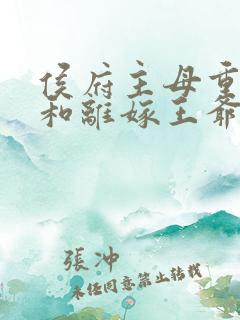 侯府主母重
和離嫁王爺
張沖
未經同意禁止轉載